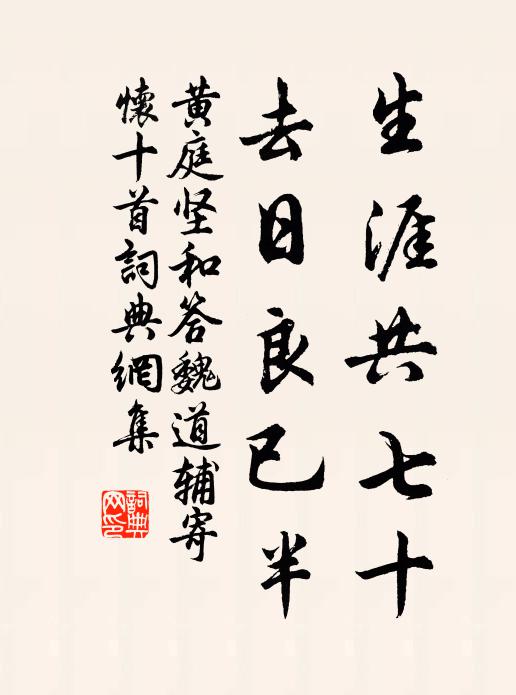 生涯共七十
去日良已半
黄庭坚和答魏道辅寄
懷十首詞典網集
詞典
网印